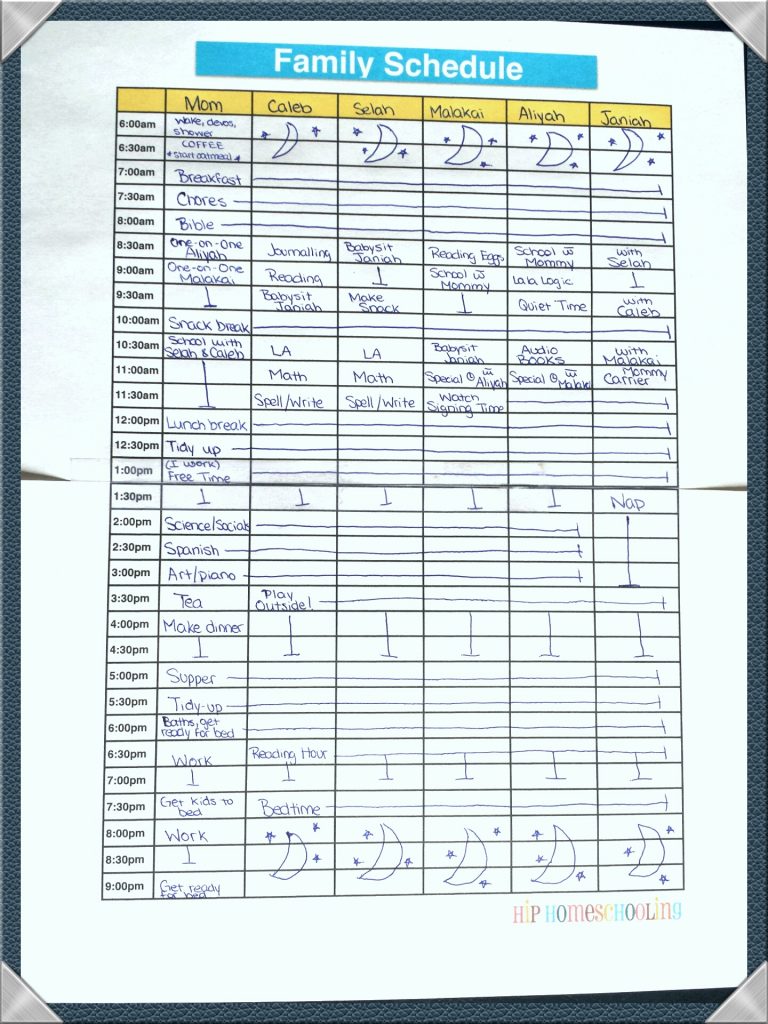 Family Schedule
Mom Caleb Selah Malakai Aliyah Janiah
6:00am Wake, devos, shower
6:30am COFFEE *start oatmeal*
7:00am Breakfast
7:30am Chores
8:00am Bible
8:30am One-on-One Aliyah Journalling Babysit Janiah Reading Eggs School w Mommy with Selah
9:00am One-on-One Malakai Reading School w Mommy La La Logic
9:30am Babysit Janiah Make Snack Quiet Time with Caleb
10:00am Snack break
10:30am School with Selah & Caleb LA LA Babysit Janiah Audio BOOKS with Malakai
11:00am Math Math Special w Aliyah Special w Malakai Mommy Carrier
11:30am Spell/Write Spell/Write Watch Signing Time
12:00pm Lunch break
12:30pm Tidy up
1:00pm (I work) Free Time
1:30pm Nap
2:00pm Science/Socials
2:30pm Spanish
3:00pm Art/piano
3:30pm Tea Play Outside!
4:00pm Make dinner
4:30pm
5:00pm Supper
5:30pm Tidy-up
6:00pm Baths, get ready for bed
6:30pm Work Reading Hour
7:00pm
7:30pm Get kids to bed Bedtime
8:00pm Work
8:30pm
9:00pm Get ready for bed
HiP HomeSCHOOLing